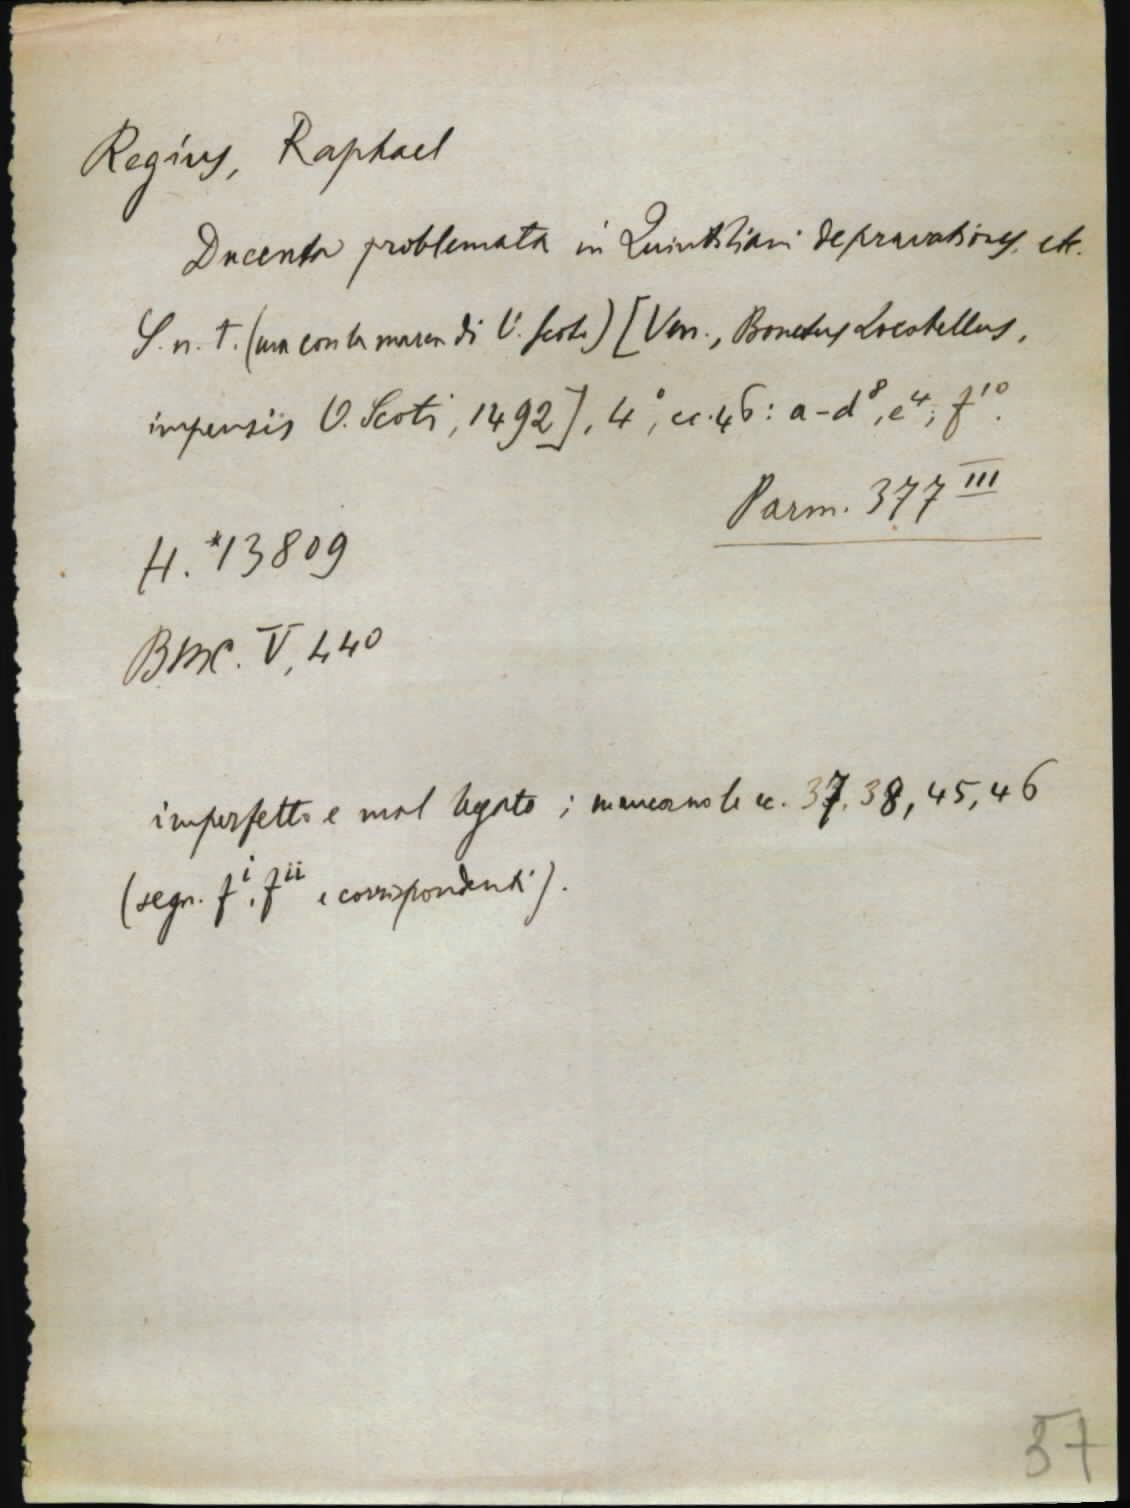 Regius, Raphael
Ducenta problemata in Quintiliani depravationes, etc.
S. n. t. (ma con la marca di O. Scoto) [Ven., Bonetus Locatellus,
impensis O. Scoti, 1492], 4°, cc. 46: a-d⁸, e⁴, f¹⁰.
Parm. 377 III
H. *13809
BMC. V, 440
imperfetto e mal legato; mancano le cc. 37, 38, 45, 46
(segn. f i, f ii e corrispondenti).
57